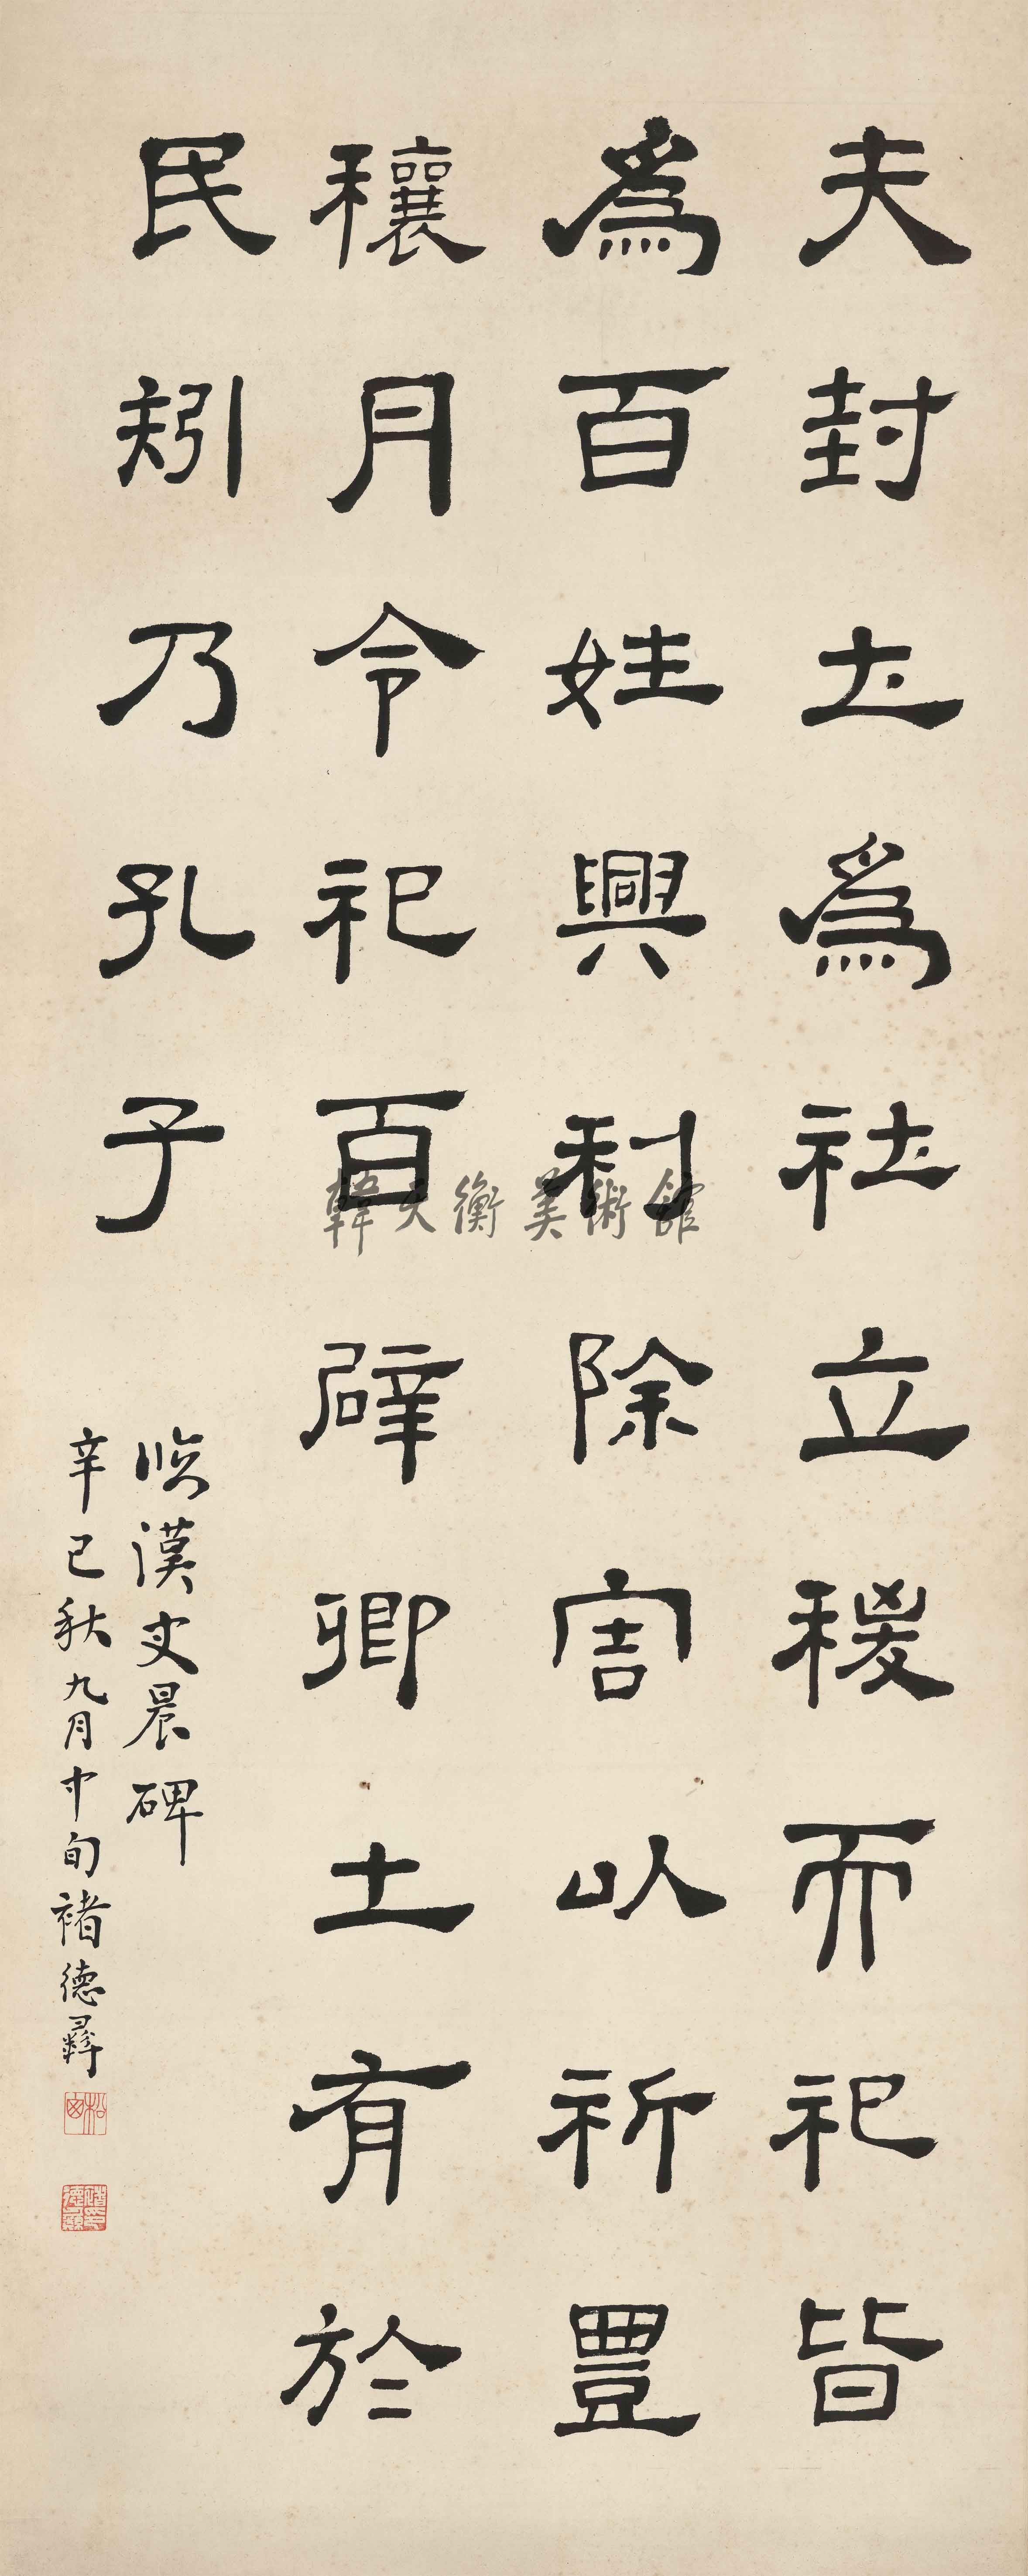 夫封土為社立稷而祀皆
為百姓興利除害以祈豐
穰月令祀百辟卿士有於
民矧乃孔子
臨漢史晨碑
辛巳秋九月中旬褚德彝
松窗
韓天衡美術館